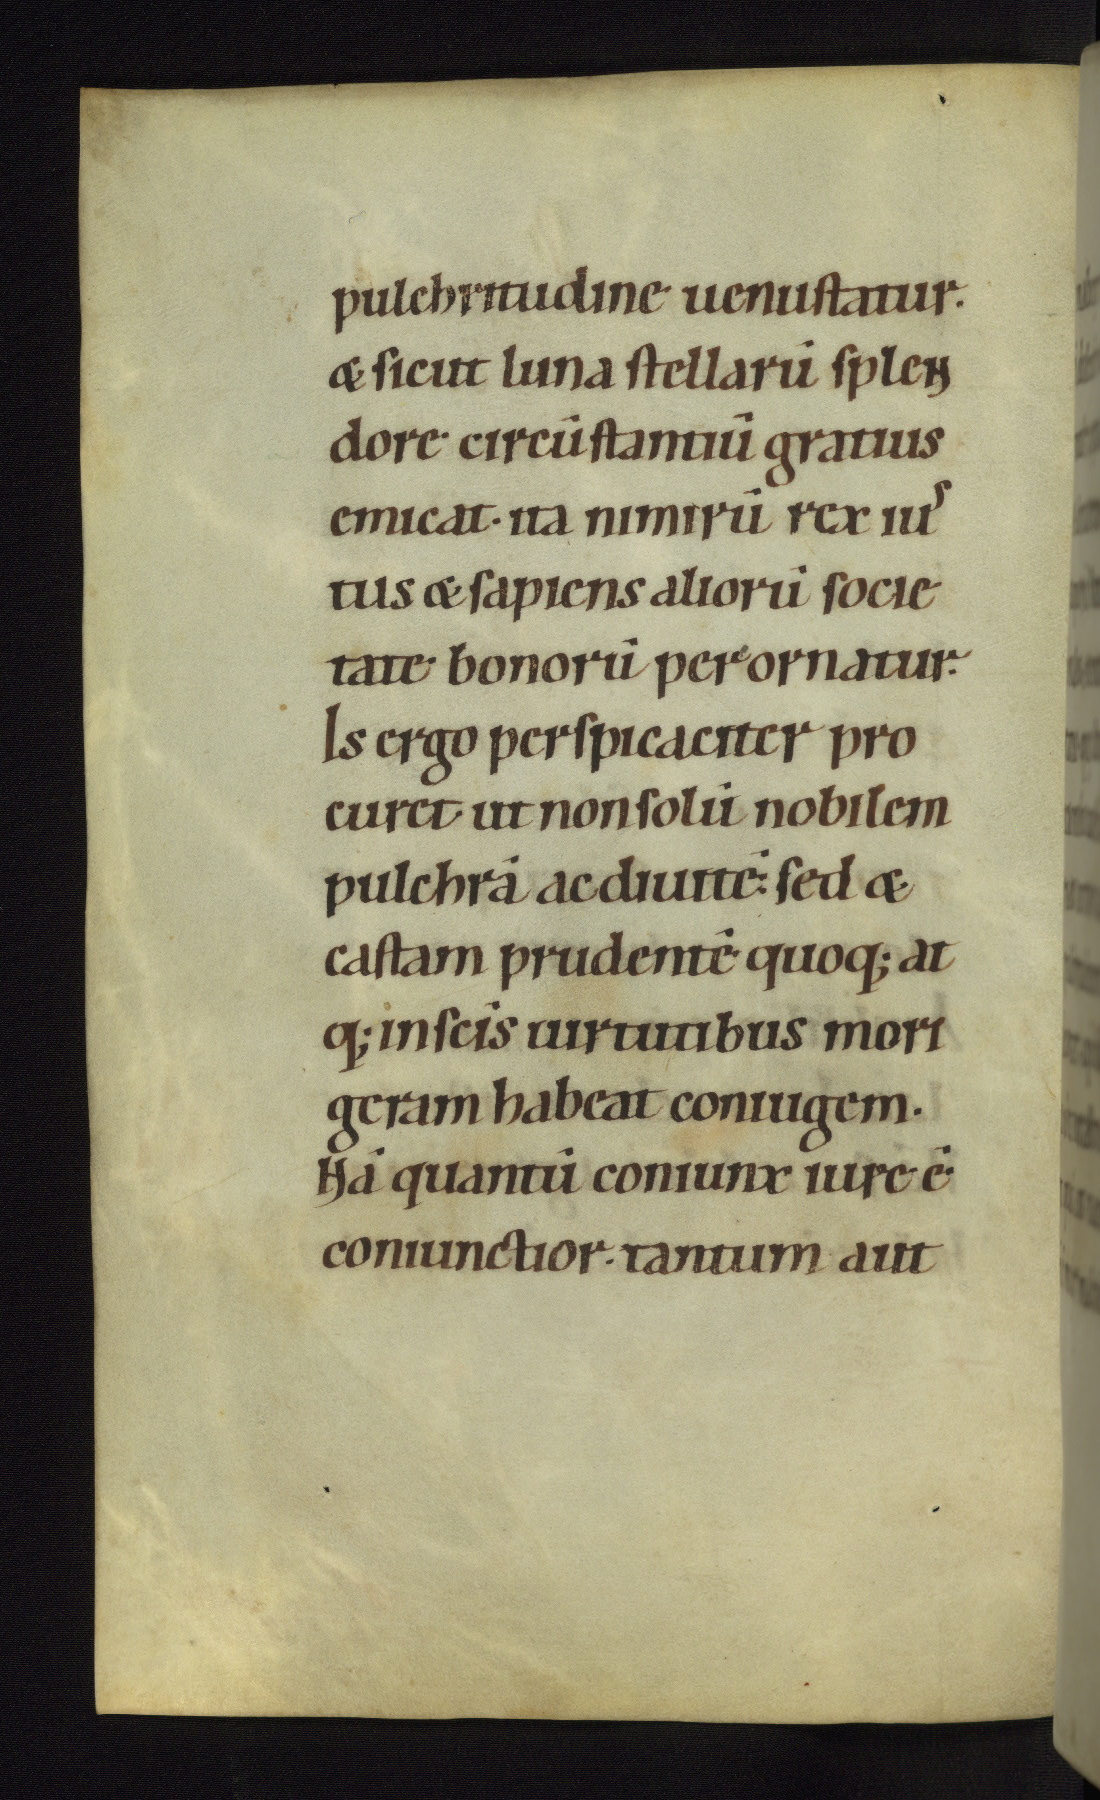 pulchritudine uenustatur.
& sicut luna stellarū splen
dore circūstantiū gratius
emicat· ita nimirū rex ius
tus & sapiens aliorū socie
tate bonorū perornatur.
Is ergo perspicaciter pro
curet· ut non solū nobilem
pulchrā ac diuitē· sed &
castam prudentē quoq; at
q; in scīs uirtutibus mori
geram habeat coniugem.
Nā quantū coniunx iure ē
coniunctior· tantum aut